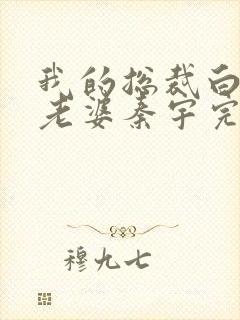 我的总裁白
老婆秦宇完
穆九七